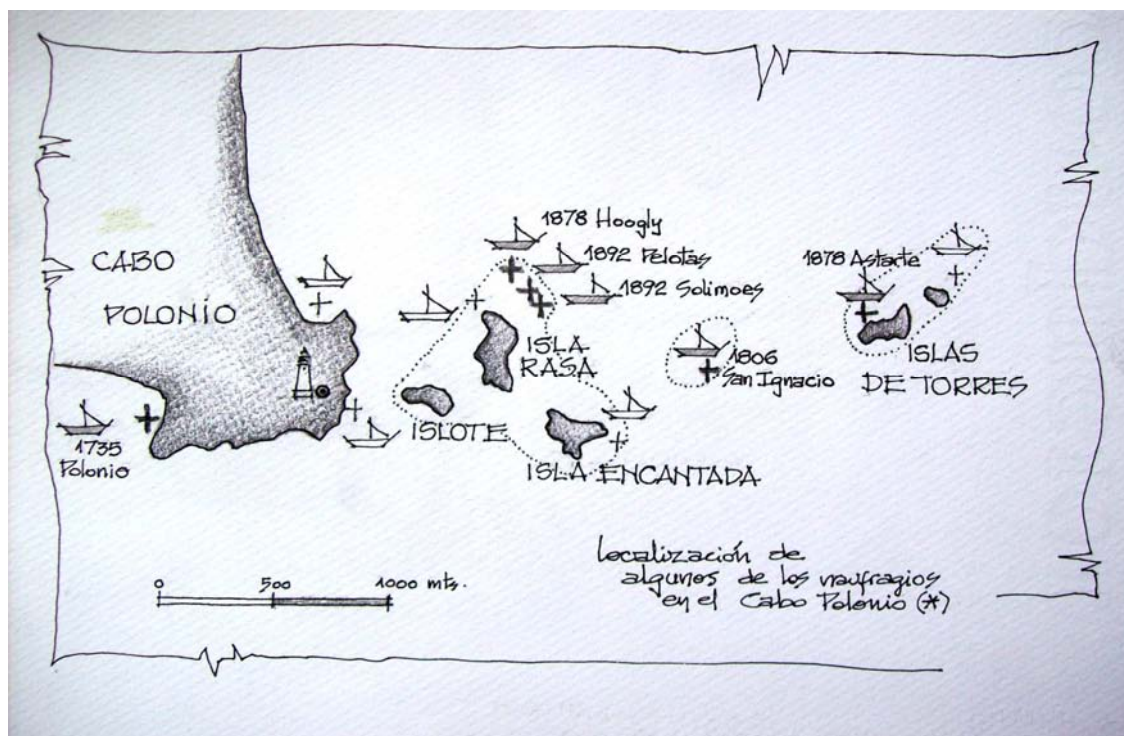 CABO
POLONIO
1735
Polonio
1878 Hoogly
1892 Pelotas
1892 Solimoes
ISLA
RASA
ISLOTE
ISLA ENCANTADA
1806
San Ignacio
1878 Astarte
ISLAS
DE TORRES
0 500 1000 mts.
Localización de
algunos de los naufragios
en el Cabo Polonio (*)